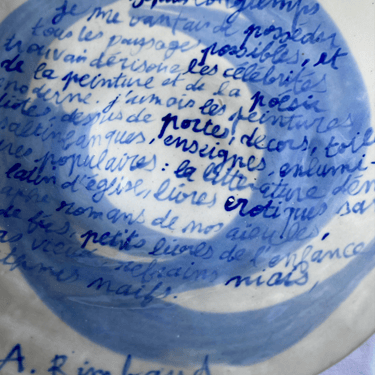 depuis longtemps
je me vantais de posséder
tous les paysages possibles, et
trouvais dérisoire les célébrités
de la peinture et de la poésie
moderne. j'aimais les peintures
idiotes, dessus de porte, décors, toiles
saltimbanques, enseignes, enlumi-
res populaires: la littérature dém
latin d'église, livres erotiques sa
aphe romans de nos aïeules,
de fées, petits livres de l'enfance
as vieux refrains niais,
ythmes naïfs.
A. Rimbaud